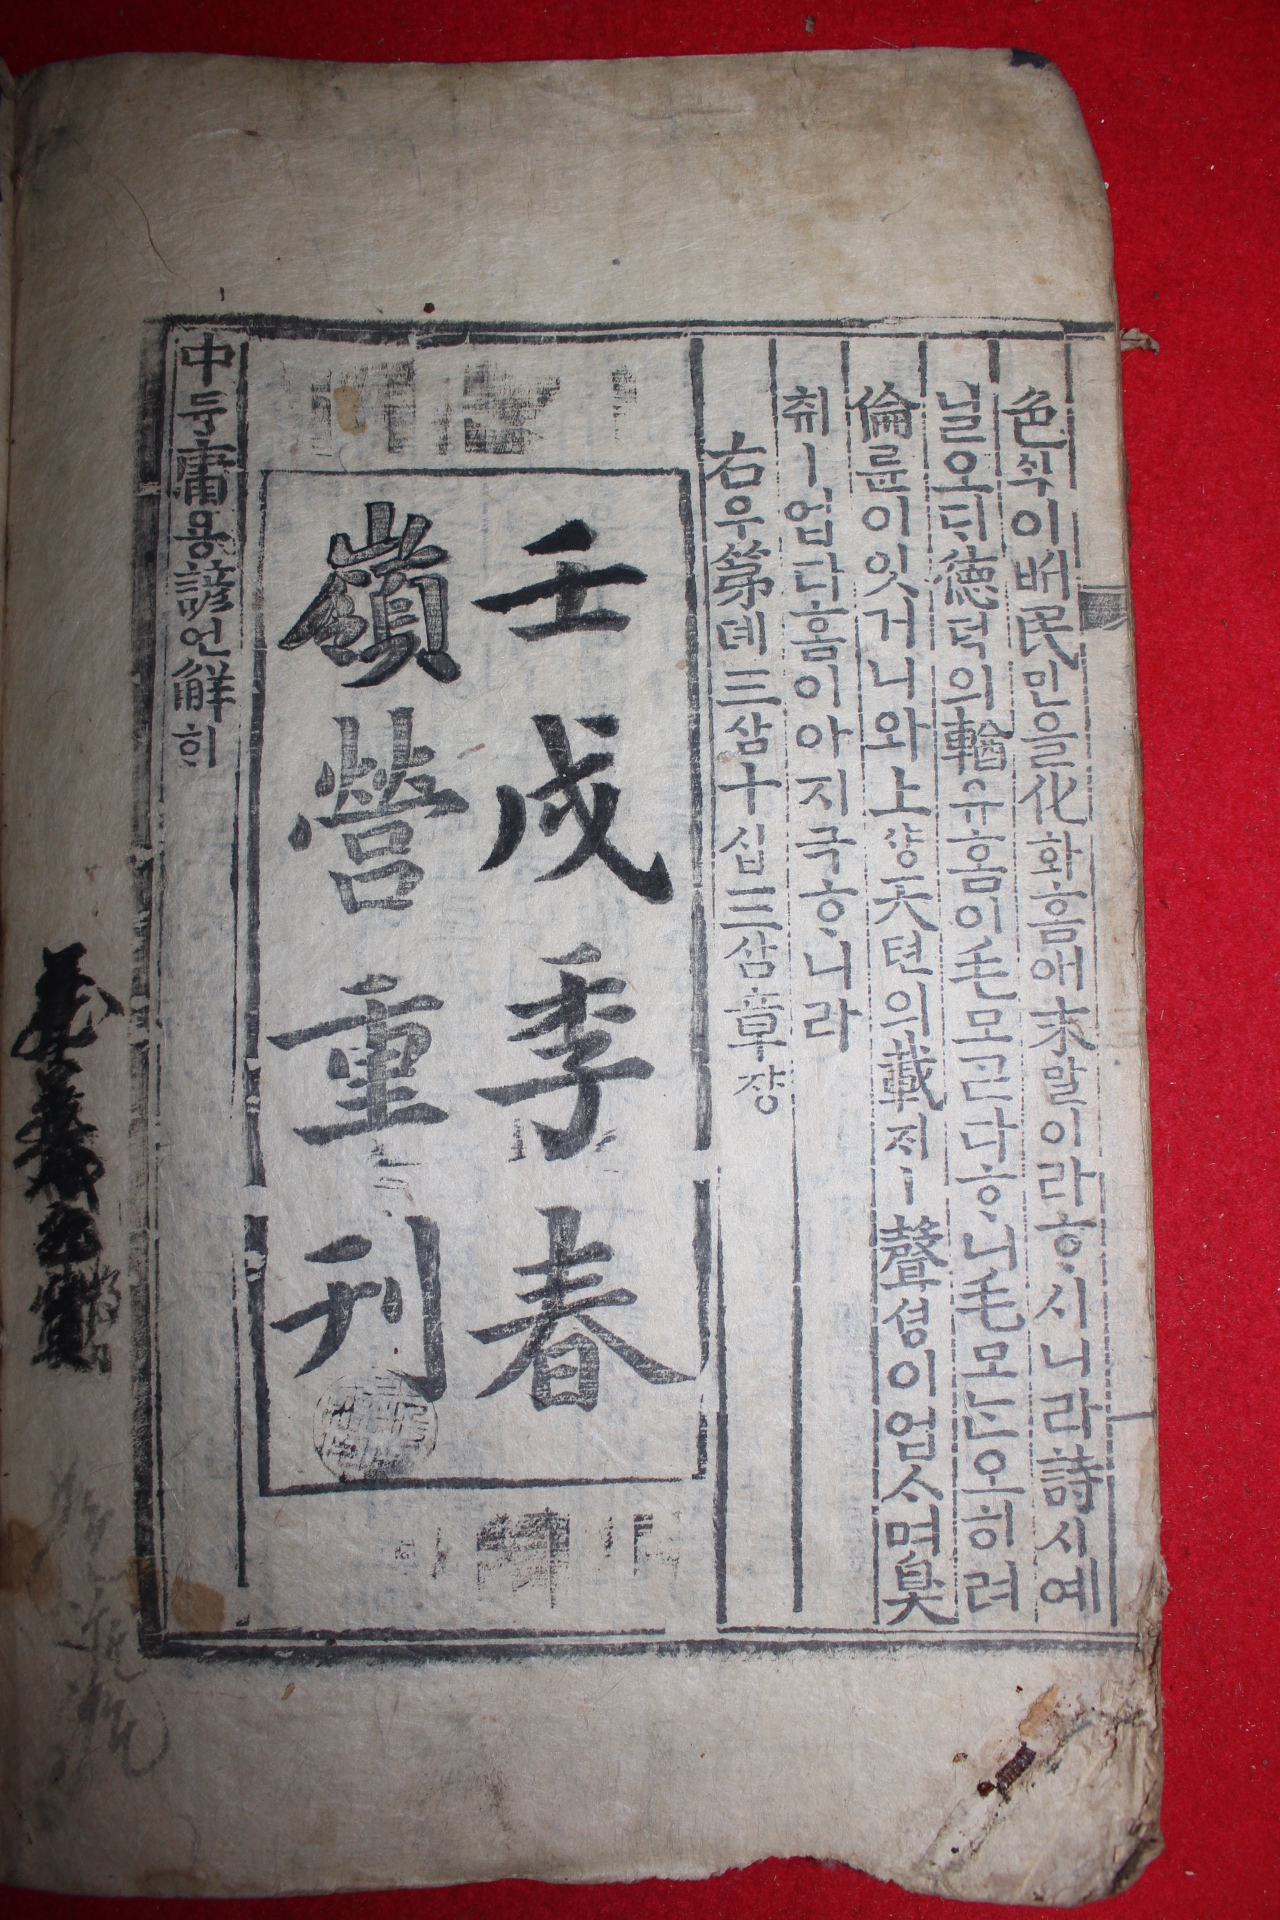 色ᄉᆡᆨ이百ᄇᆡᆨ民민을化화홈애末말이라ᄒᆞ시니라詩시예
닐오ᄃᆡ德덕의輶유홈이毛모ᄀᆞᆮ다ᄒᆞ니毛모ᄂᆞᆫ오히려
倫륜이잇거니와上샹天텬의載ᄌᆡㅣ聲셩이업스며臭
취ㅣ업다홈이아지극ᄒᆞ니라
右우第뎨三삼十십三삼章쟝
壬戌季春
嶺營重刊
中듕庸용諺언解ᄒᆡ